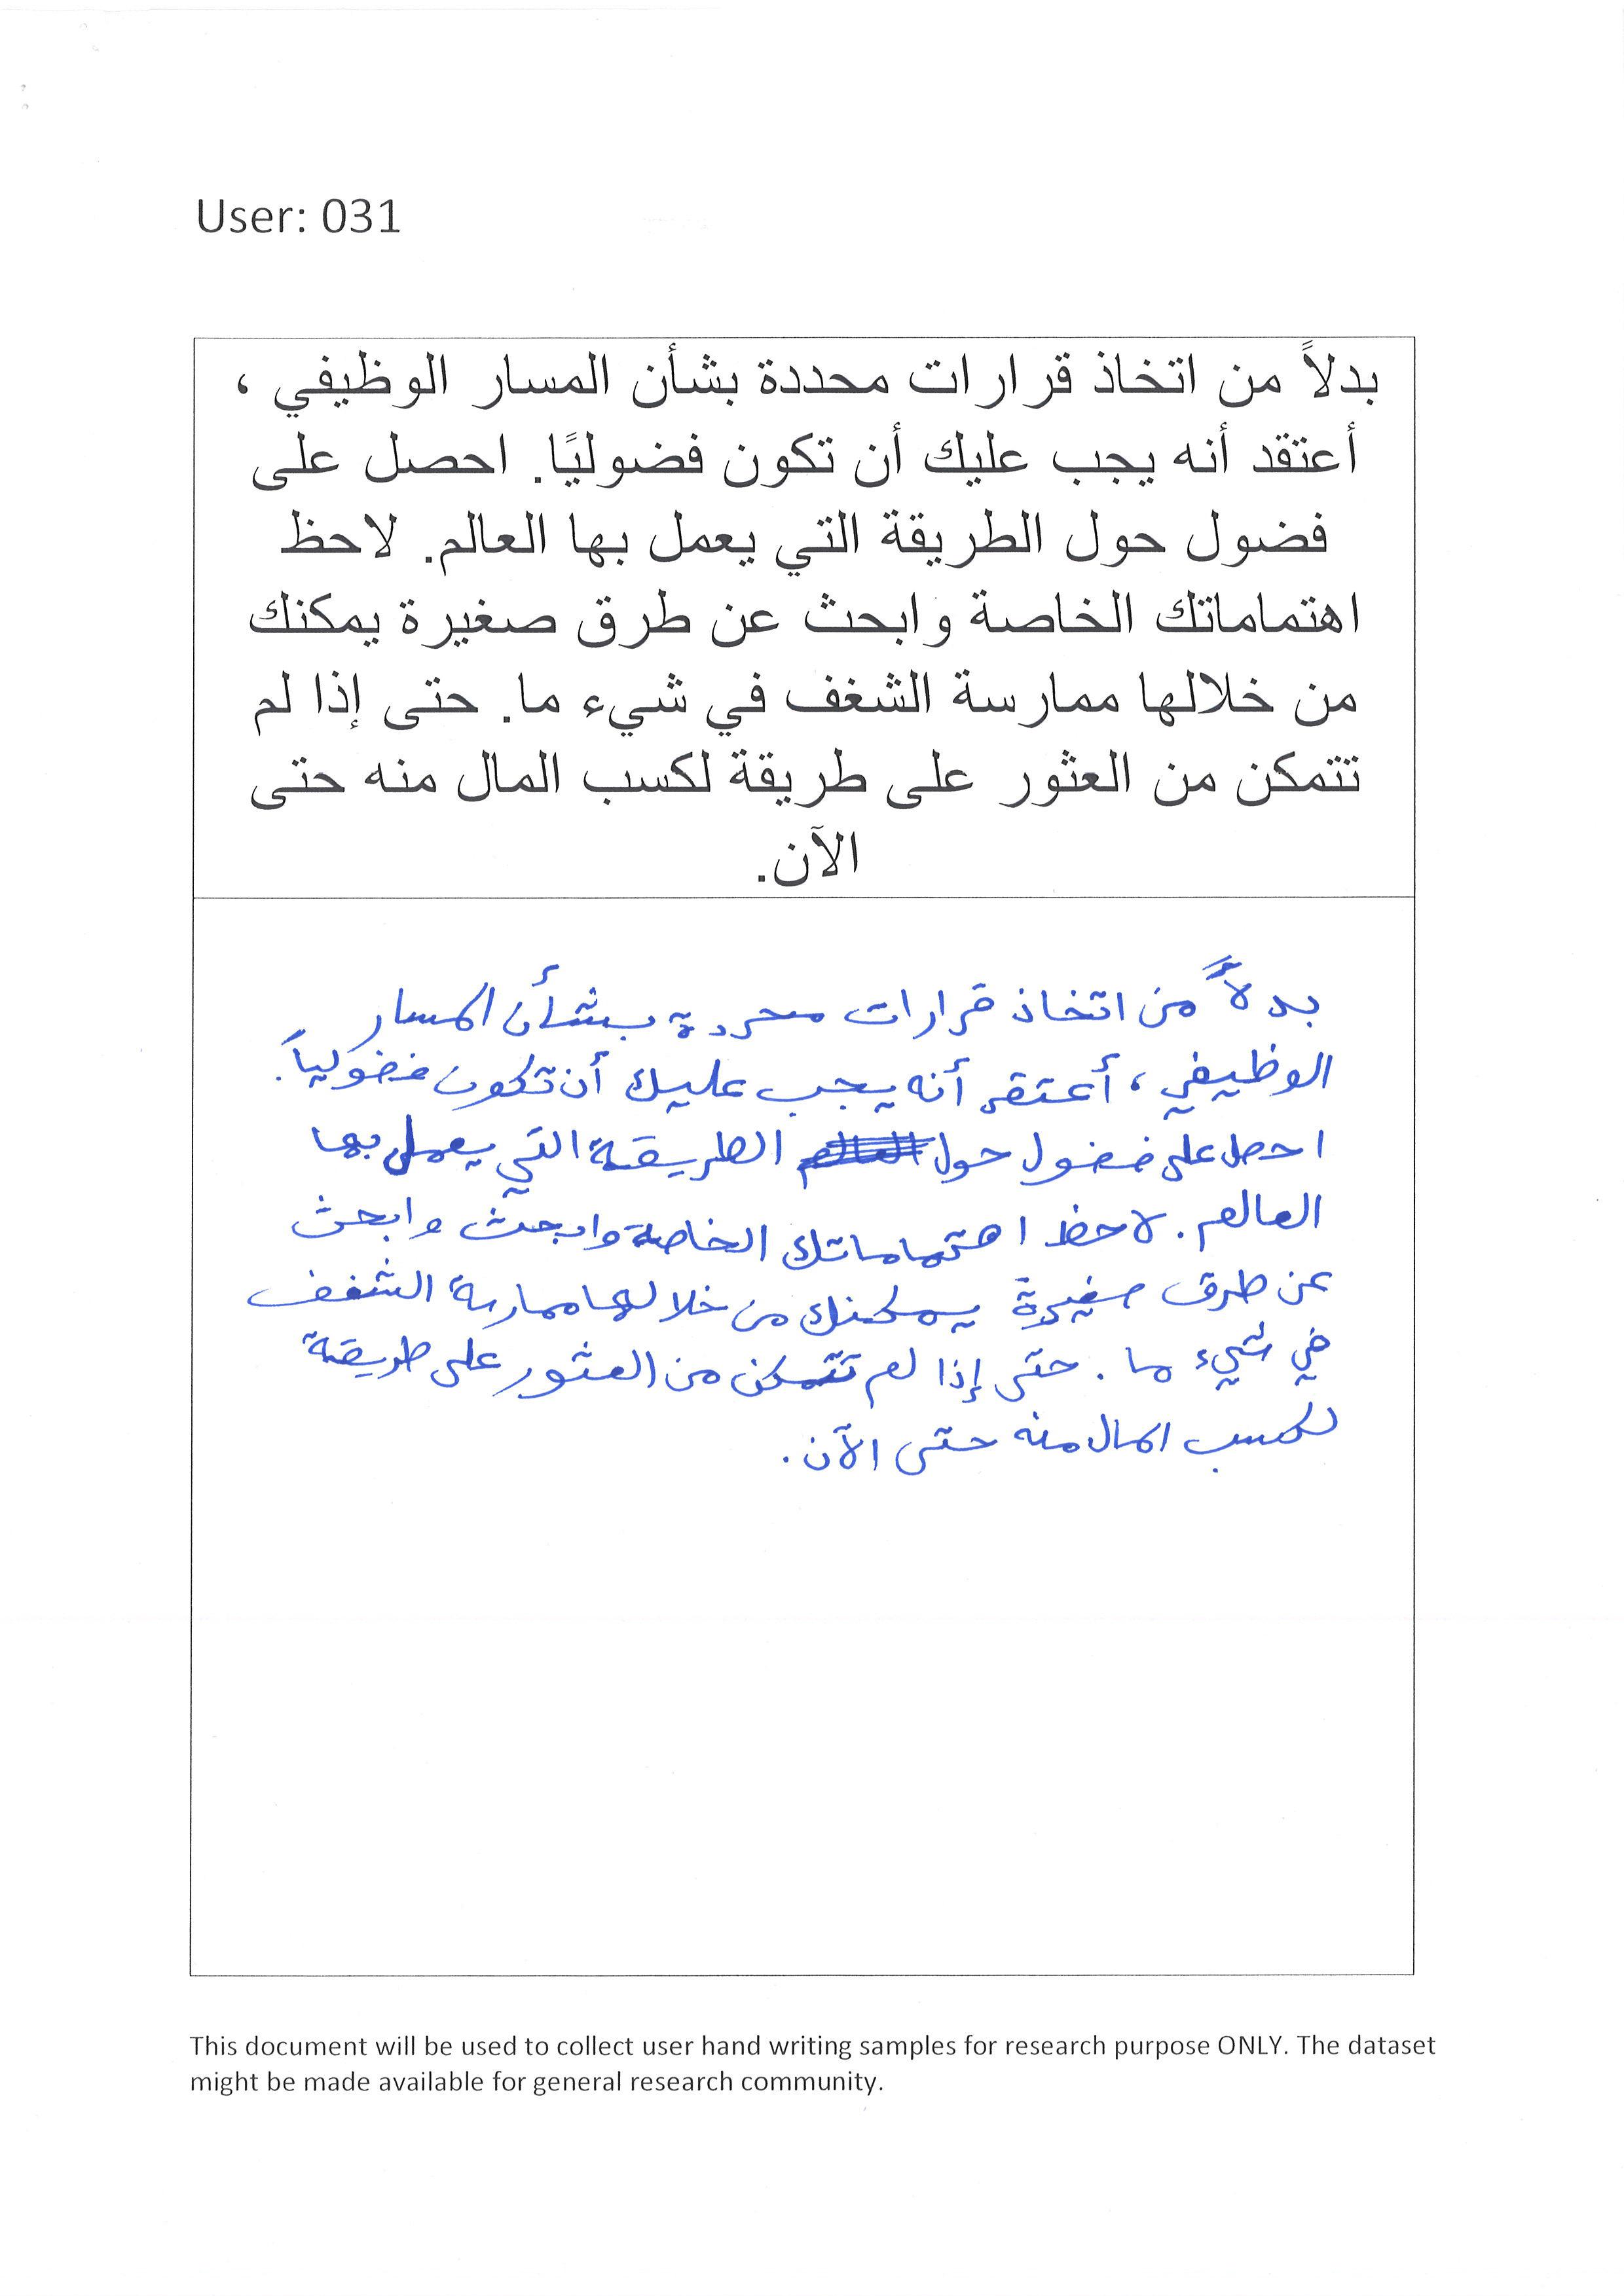 User: 031
بدلاً من اتخاذ قرارات محددة بشأن المسار الوظيفي ،
أعتقد أنه يجب عليك أن تكون فضوليًا. احصل على
فضول حول الطريقة التي يعمل بها العالم. لاحظ
اهتماماتك الخاصة وابحث عن طرق صغيرة يمكنك
من خلالها ممارسة الشغف في شيء ما. حتى إذا لم
تتمكن من العثور على طريقة لكسب المال منه حتى
الآن.
بدلاً من اتخاذ قرارات محددة بشأن المسار
الوظيفي ، أعتقد أنه يجب عليك أن تكون فضولياً.
احصل على فضول حول الطريقة التي يعمل بها
العالم. لاحظ اهتماماتك الخاصة وابحث وابحث
عن طرق صغيرة يمكنك من خلالها ممارسة الشغف
في شيء ما. حتى إذا لم تتمكن من العثور على طريقة
لكسب المال منه حتى الآن.
This document will be used to collect user hand writing samples for research purpose ONLY. The dataset
might be made available for general research community.